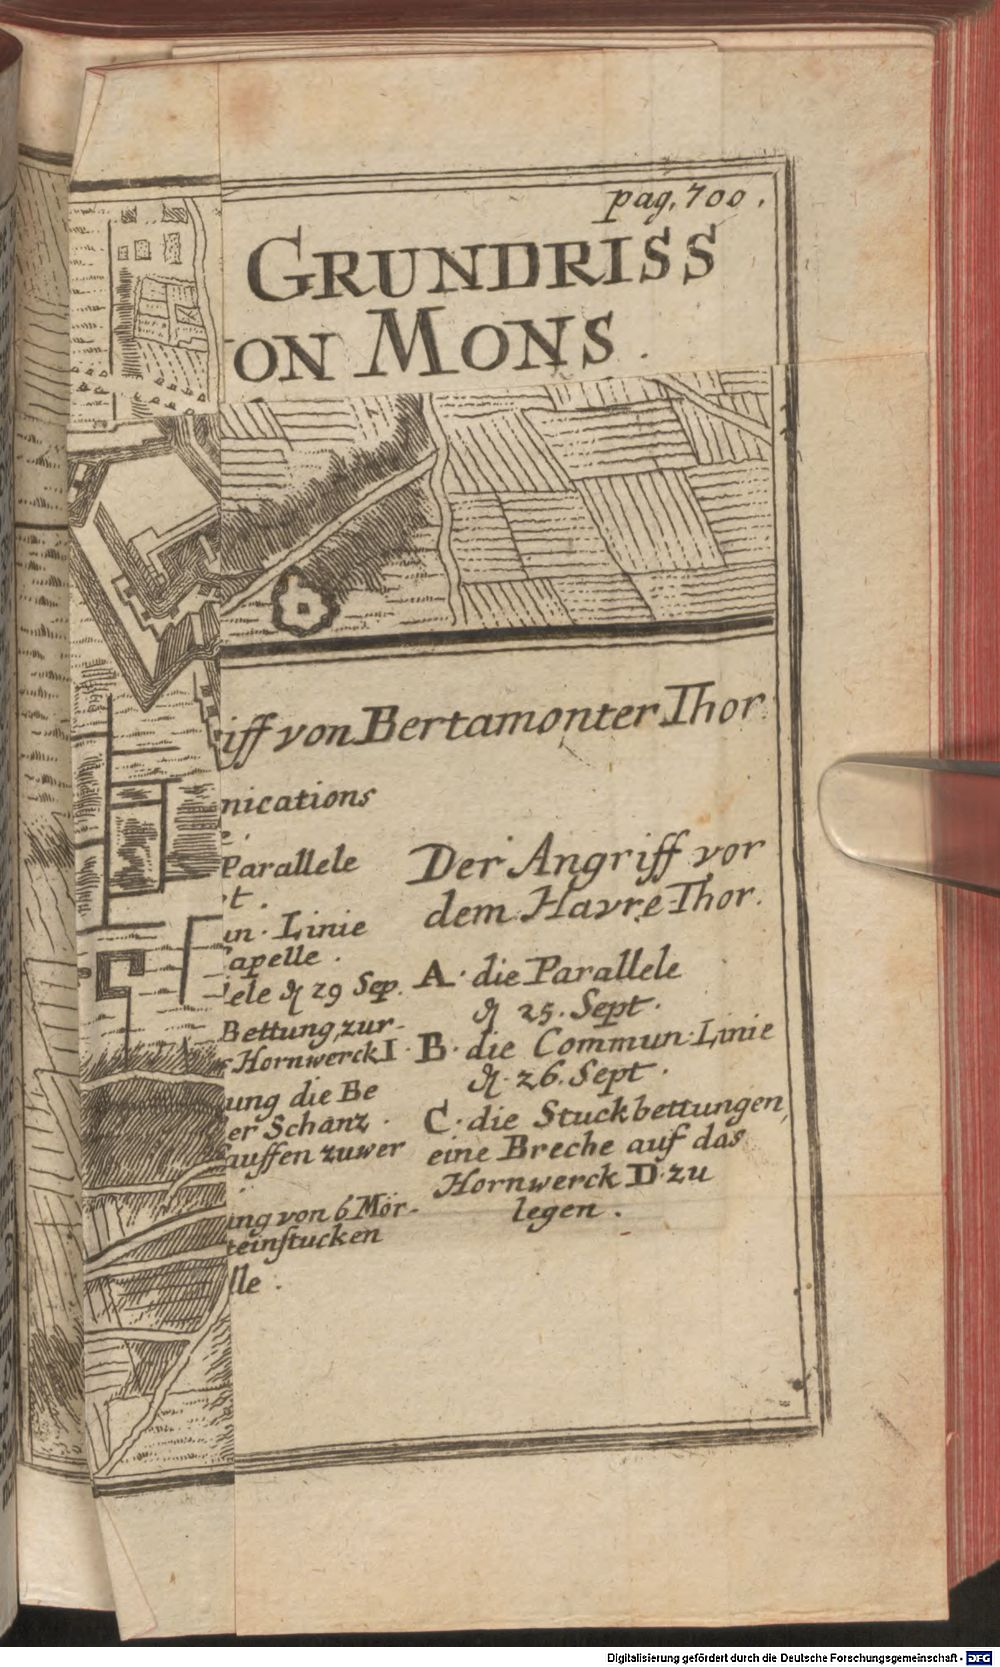 pag. 700.
GRUNDRISS
ON MONS.
iff von Bertamonter Thor
nications
Parallele
t.
un. Linie
apelle.
lele 29 Sep.
Bettung zur
Hornwerck I.
ung die Be
er Schanz.
auffen zuwer
ung von 6 Mör-
teinstucken
lle.
Der Angriff vor
dem Havre Thor.
A. die Parallele
25. Sept.
B. die Commun. Linie
26. Sept.
C. die Stuckbettungen,
eine Breche auf das
Hornwerck D. zu
legen.
Digitalisierung gefördert durch die Deutsche Forschungsgemeinschaft - DFG